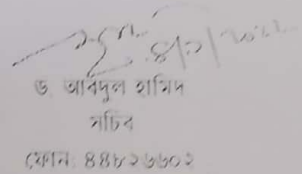 ড. আবদুল হামিদ
সচিব
ফোন: ৪৪৮২৬৬০২